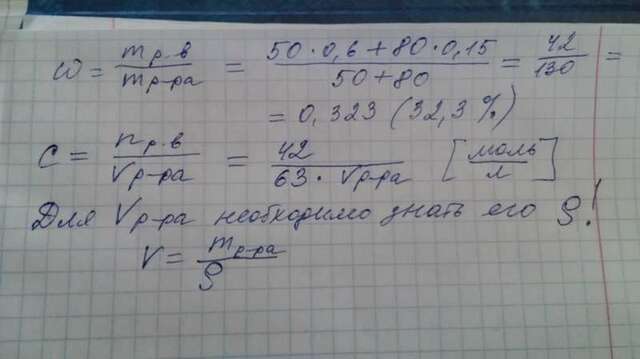 ω = m р.в / m р-ра = 50·0,6+80·0,15 / 50+80 = 42 / 130 =
= 0,323 (32,3 %)
C = n р.в / V р-ра = 42 / 63 · V р-ра [моль / л]
Для V р-ра необходимо знать его ρ!
V = m р-ра / ρ